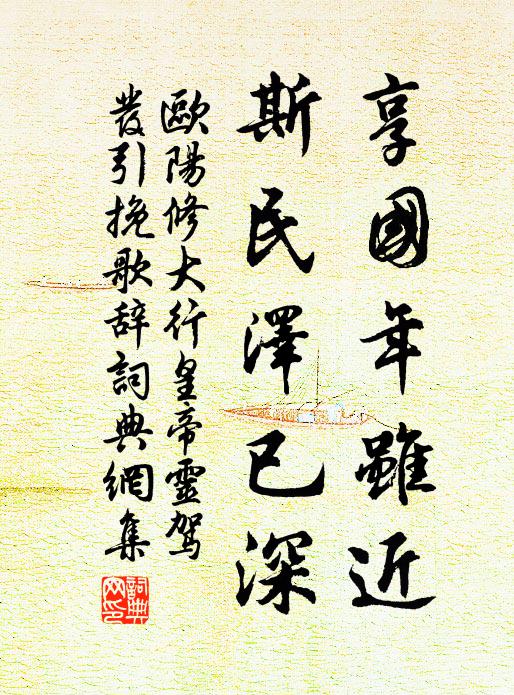 享國年雖近
斯民澤已深
歐陽修大行皇帝靈駕
發引挽歌辞詞典網集
詞典
网印